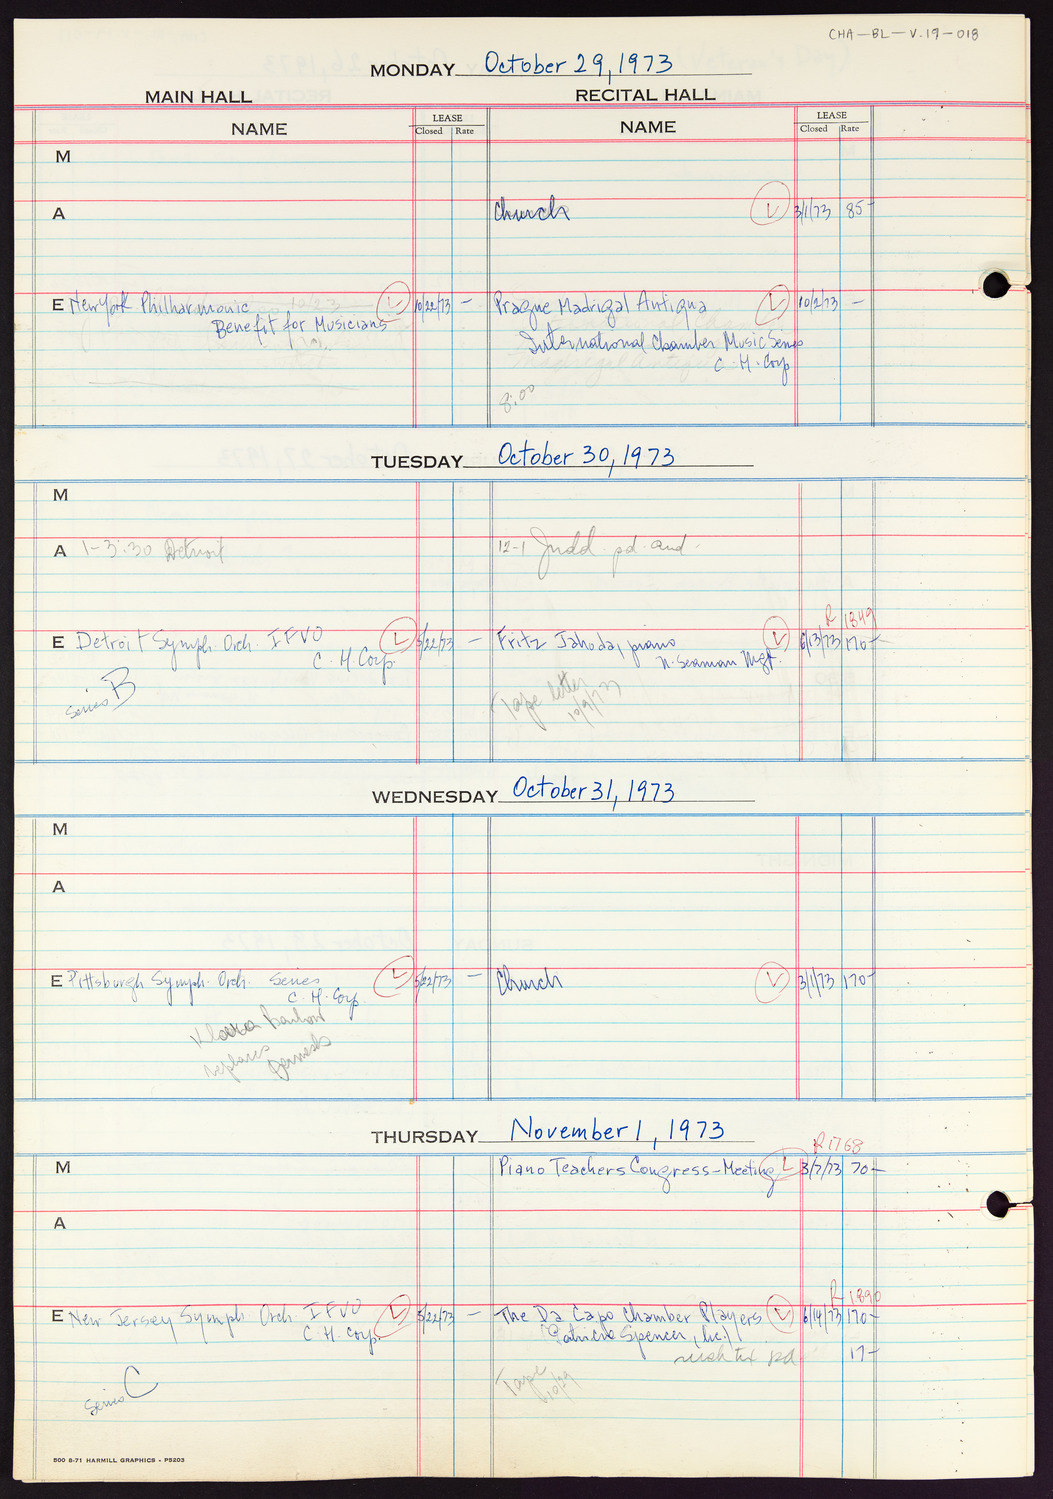 CHA-BL-V.19-018
MONDAY October 29, 1973
MAIN HALL RECITAL HALL
NAME LEASE Closed Rate NAME LEASE Closed Rate
M
A Church L 3/1/73 85-
E New York Philharmonic L 10/22/73 - Prague Madrigal Antiqua L 10/2/73 -
Benefit for Musicians International Chamber Music Series
C.H. Corp
8:00
TUESDAY October 30, 1973
M
A 1-3:30 Detroit 12-1 Judd pd. and.
R 1849
E Detroit Symph. Orch. IFVO L 5/22/73 - Fritz Jahoda, piano L 6/13/73 170-
C.H. Corp. N. Seaman Mgt.
Series B Tape letter
10/9/73
WEDNESDAY October 31, 1973
M
A
E Pittsburgh Symph. Orch. Series L 5/22/73 - Church L 3/1/73 170-
C.H. Corp.
Klara Barlow
replaces
THURSDAY November 1, 1973
R1768
M Piano Teachers Congress-Meeting L 3/7/73 70-
A
R 1890
E New Jersey Symph Orch. IFVO L 5/22/73 - The Da Capo Chamber Players L 6/14/73 170-
C.H. Corp. (Patricia Spencer, Inc.)
tix pd 17-
Series C Tape
10/29
500 6-71 HARMILL GRAPHICS - P5203